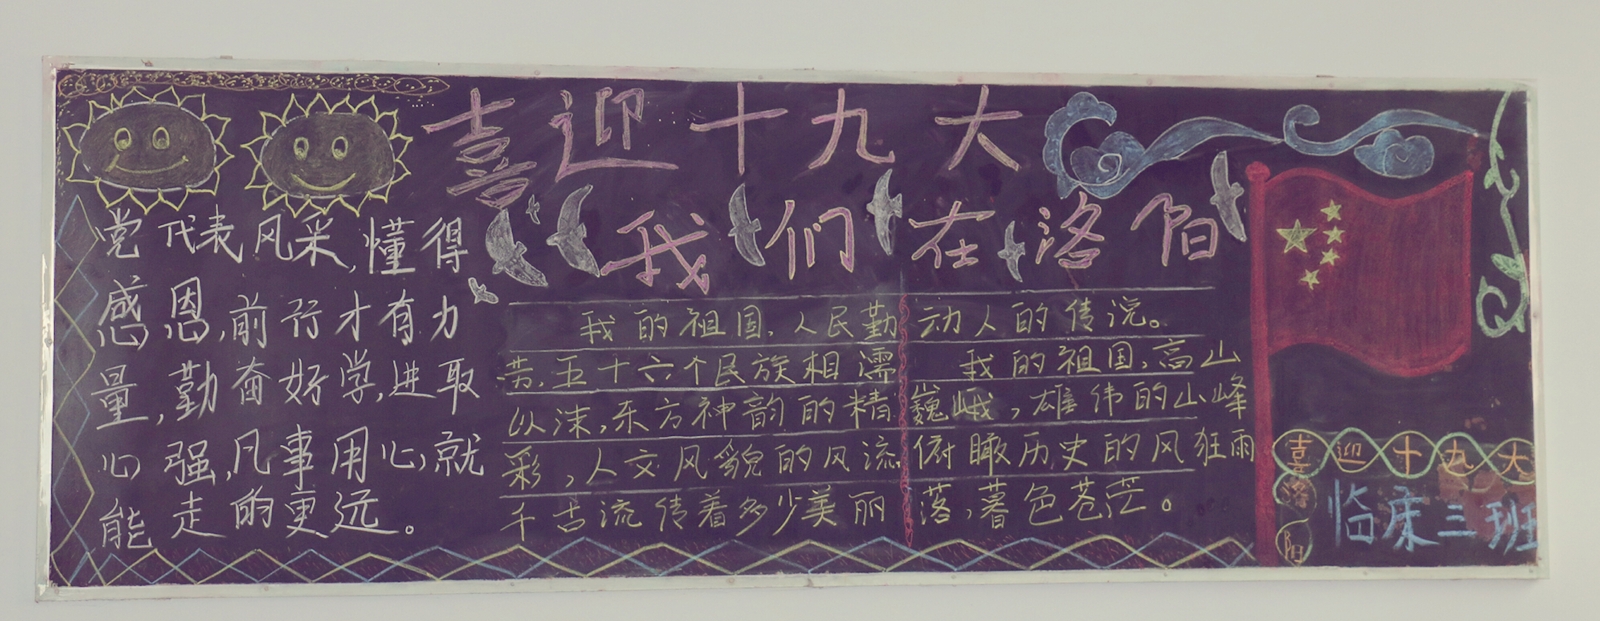 喜迎十九大
我们在洛阳
党代表风采,懂得
感恩,前行才有力
量,勤奋好学,进取
心强,凡事用心,就
能走的更远。
我的祖国,人民勤
劳,五十六个民族相濡
以沫,东方神韵的精
彩,人文风貌的风流
千古流传着多少美丽
动人的传说。
我的祖国,高山
巍峨,雄伟的山峰
俯瞰历史的风狂雨
落,暮色苍茫。
喜迎十九大
洛
阳
临床三班